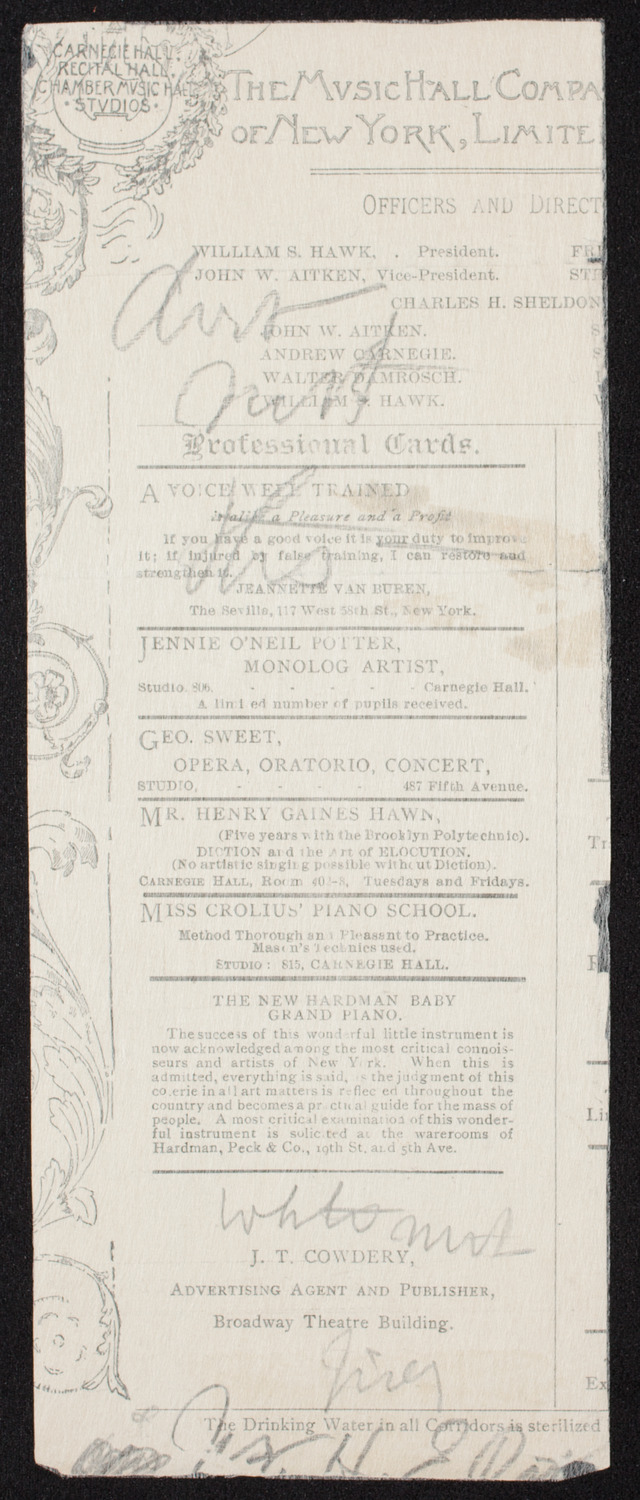 CARNEGIE HALL.
RECITAL HALL.
CHAMBER MVSIC HALL
· STVDIOS ·
THE MVSIC HALL COMPA
OF NEW YORK, LIMITE
OFFICERS AND DIRECT
WILLIAM S. HAWK, . President. FRE
JOHN W. AITKEN, Vice-President. STE
CHARLES H. SHELDON
JOHN W. AITKEN.
ANDREW CARNEGIE.
WALTER DAMROSCH.
WILLIAM S. HAWK.
Professional Cards.
A VOICE WELL TRAINED
is alike a Pleasure and a Profit
If you have a good voice it is your duty to improve
it; if injured by false training, I can restore and
strengthen it.
JEANNETTE VAN BUREN,
The Seville, 117 West 58th St., New York.
JENNIE O'NEIL POTTER,
MONOLOG ARTIST,
Studio. 806, - - - - - Carnegie Hall.
A limi ed number of pupils received.
GEO. SWEET,
OPERA, ORATORIO, CONCERT,
STUDIO, - - - - 487 Fifth Avenue.
MR. HENRY GAINES HAWN,
(Five years with the Brooklyn Polytechnic).
DICTION and the Art of ELOCUTION.
(No artistic singing possible without Diction).
CARNEGIE HALL, Room Tuesdays and Fridays.
MISS CROLIUS' PIANO SCHOOL.
Method Thorough and Pleasant to Practice.
Mason's Technics used.
STUDIO: 815, CARNEGIE HALL.
THE NEW HARDMAN BABY
GRAND PIANO.
The success of this wonderful little instrument is
now acknowledged among the most critical connois-
seurs and artists of New York. When this is
admitted, everything is said, as the judgment of this
coterie in all art matters is reflec ed throughout the
country and becomes a practical guide for the mass of
people. A most critical examination of this wonder-
ful instrument is solicited at the warerooms of
Hardman, Peck & Co., 19th St. and 5th Ave.
J. T. COWDERY,
ADVERTISING AGENT AND PUBLISHER,
Broadway Theatre Building.
Tr
Li
Ex
The Drinking Water in all Corridors is sterilized